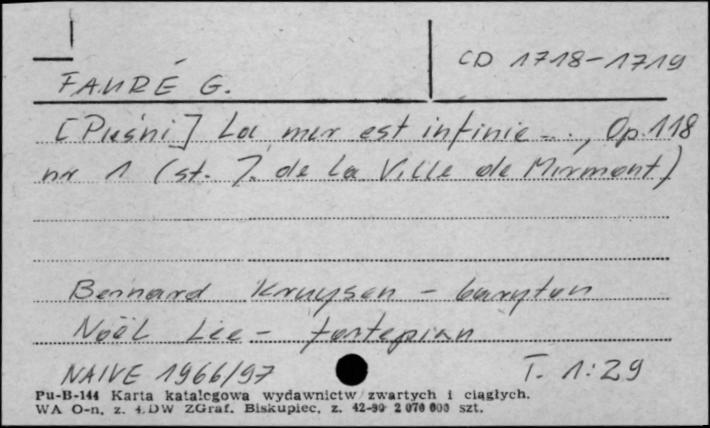 CD 1718-1719
FAURÉ G.
[Pieśni] La mer est infinie..., Op. 118
nr 1 (st. J. de la Ville de Mirmont)
Bernard Kruysen - baryton
Noël Lee - fortepian
NAIVE 1966/97 T. 1:29
Pu-B-144 Karta katalogowa wydawnictw zwartych i ciągłych.
WA O-n, z. 4. DW ZGraf. Biskupiec, z. 42-90 2 070 000 szt.